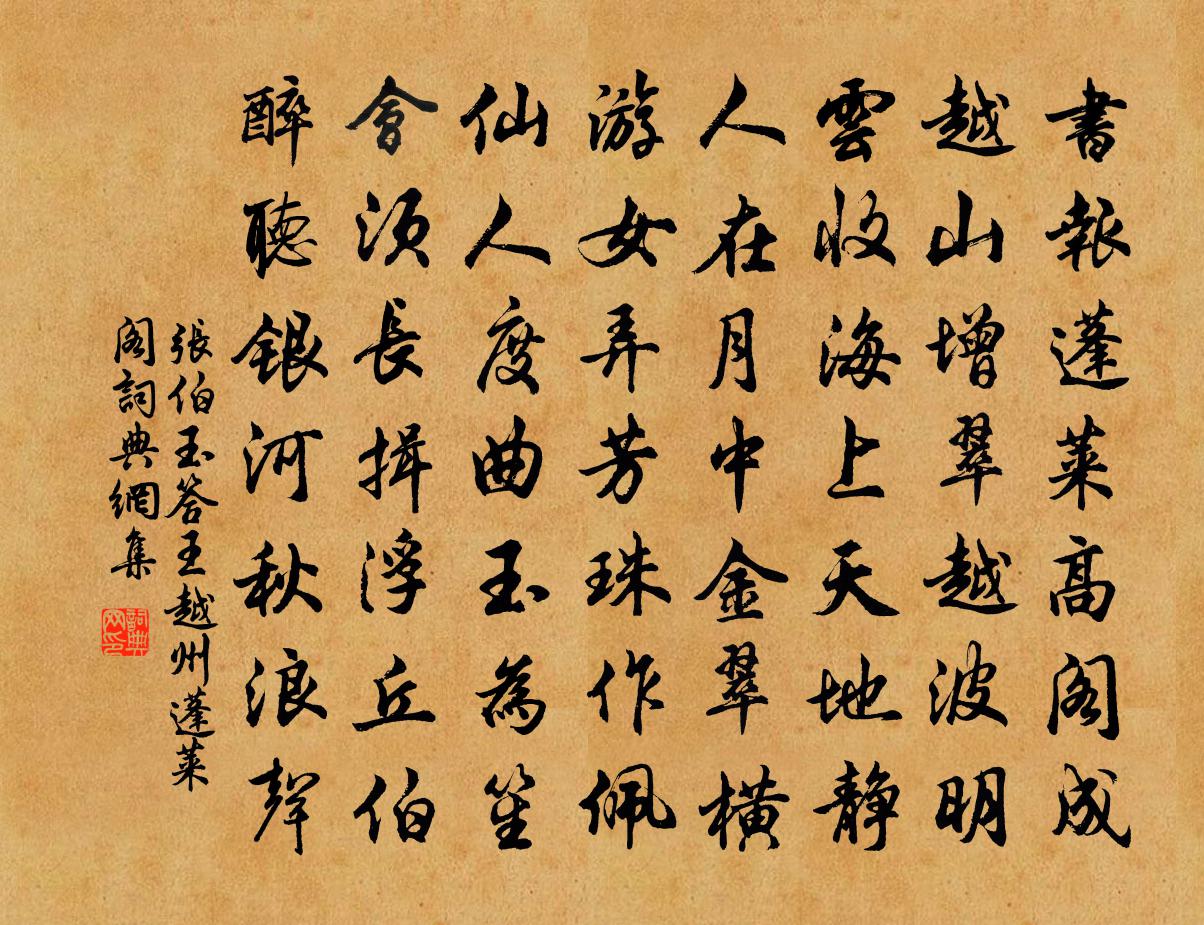 書報蓬萊高閣成
越山增翠越波明
雲收海上天地静
人在月中金翠橫
游女弄芳珠作佩
仙人度曲玉為笙
會須長揖浮丘伯
醉聽銀河秋浪聲
張伯玉答王越州蓬萊
閣詞典網集
詞典网印